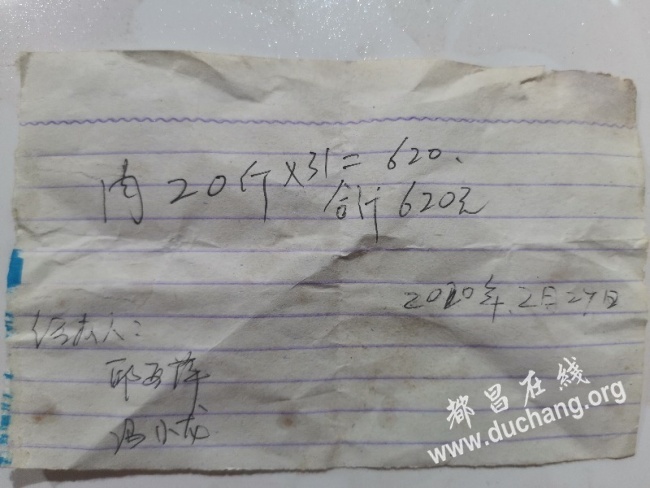 肉20斤×31=620.
合计620元
2020年.2月27日
经办人:
邱
冯小龙
都昌在线
www.duchang.org